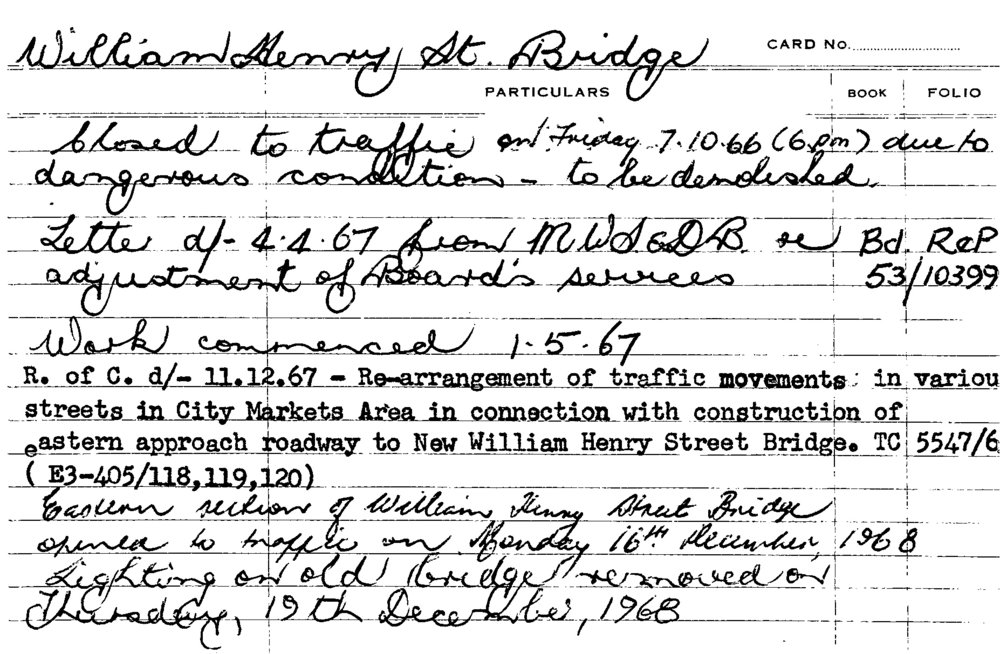 William Henry St. Bridge CARD No.
PARTICULARS BOOK FOLIO
Closed to traffic on Friday 7.10.66 (6pm) due to
dangerous condition - to be demolished.
Letter d/- 4.4.67 from M.W.S.&D.B. re Bd. ReP
adjustment of Board's services 53/10399
Work commenced 1.5.67
R. of C. d/- 11.12.67 - Re-arrangement of traffic movements in variou
streets in City Markets Area in connection with construction of
eastern approach roadway to New William Henry Street Bridge. TC 5547/6
( E3-405/118,119,120)
Eastern section of William Henry Street Bridge
opened to traffic on Monday 16th December, 1968
Lighting on old bridge removed on
Thursday, 19th December, 1968